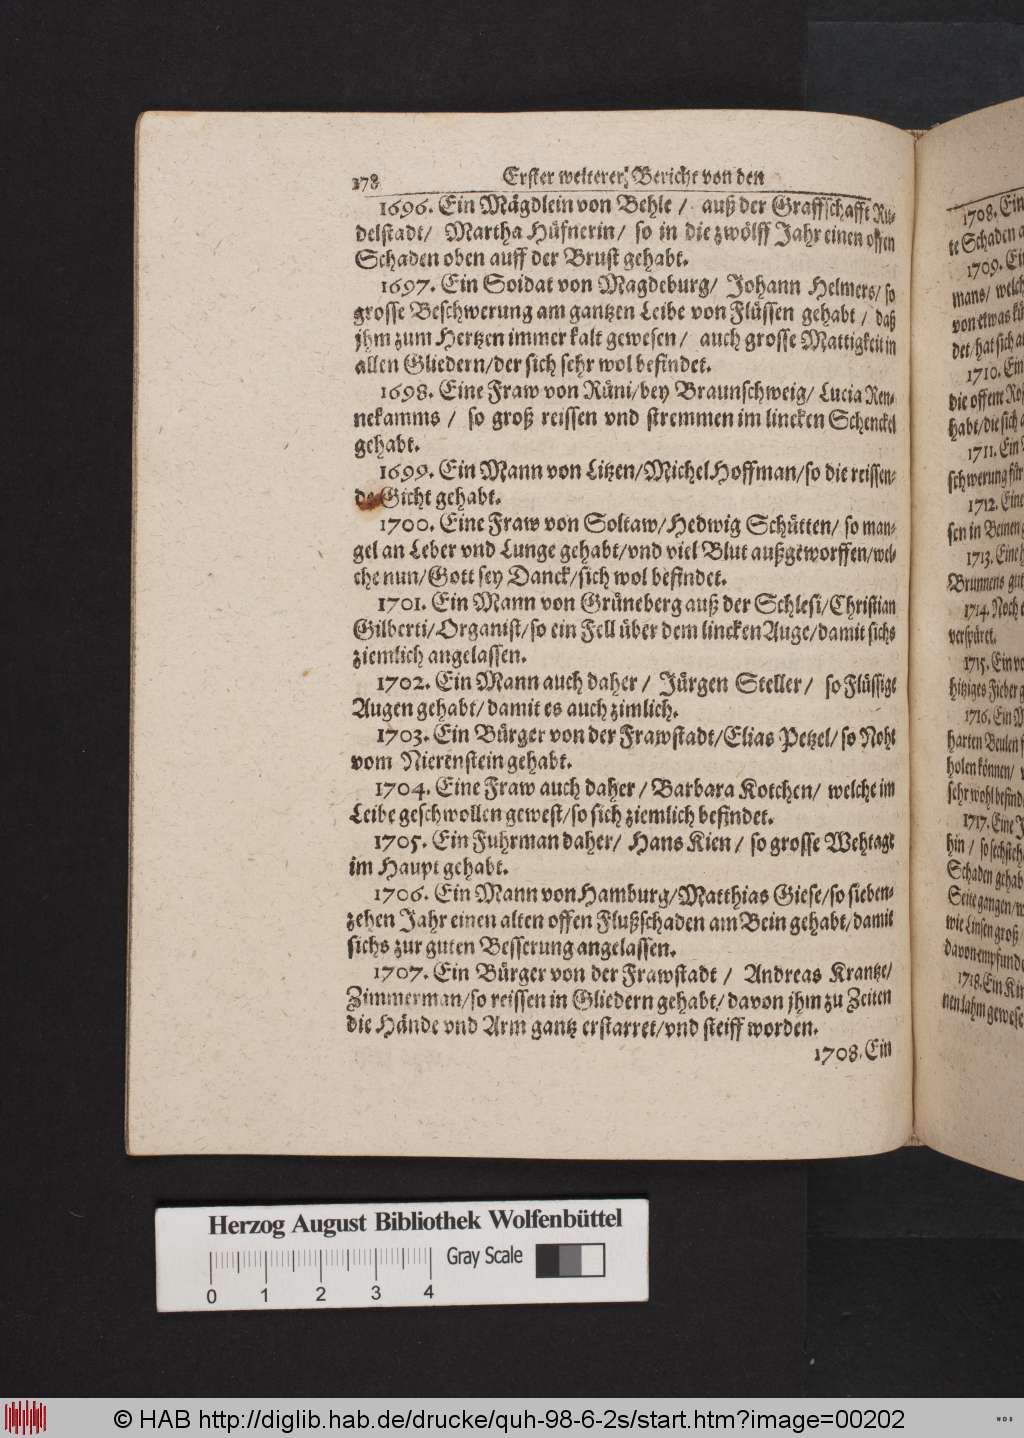 178 Erster weiterer Bericht von den
1696. Ein Mägdlein von Behle / auß der Graffschafft Ru-
delstadt / Martha Hüfnerin / so in die zwölff Jahr einen offen
Schaden oben auff der Brust gehabt.
1697. Ein Soldat von Magdeburg / Johann Helmers / so
grosse Beschwerung am gantzen Leibe von Flüssen gehabt / daß
jhm zum Hertzen immer kalt gewesen / auch grosse Mattigkeit in
allen Gliedern / der sich sehr wol befindet.
1698. Eine Fraw von Rüni / bey Braunschweig / Lucia Ren-
nekamms / so groß reissen vnd stremmen im lincken Schenckel
gehabt.
1699. Ein Mann von Litzen / Michel Hoffman / so die reissen-
de Gicht gehabt.
1700. Eine Fraw von Soltaw / Hedwig Schütten / so man-
gel an Leber vnd Lunge gehabt / vnd viel Blut außgeworffen / wel-
che nun / Gott sey Danck / sich wol befindet.
1701. Ein Mann von Grüneberg auß der Schlesi / Christian
Gilberti / Organist / so ein Fell über dem lincken Auge / damit sichs
ziemlich angelassen.
1702. Ein Mann auch daher / Jürgen Steller / so Flüssige
Augen gehabt / damit es auch zimlich.
1703. Ein Bürger von der Frawstadt / Elias Petzel / so Noht
vom Nierenstein gehabt.
1704. Eine Fraw auch daher / Barbara Kotchen / welche im
Leibe geschwollen gewest / so sich ziemlich befindet.
1705. Ein Fuhrman daher / Hans Kien / so grosse Wehtage
im Haupt gehabt.
1706. Ein Mann von Hamburg / Matthias Giese / so sieben-
zehen Jahr einen alten offen Flußschaden am Bein gehabt / damit
sichs zur guten Besserung angelassen.
1707. Ein Bürger von der Frawstadt / Andreas Krantze /
Zimmerman / so reissen in Gliedern gehabt / davon jhm zu Zeiten
die Hände vnd Arm gantz erstarret / vnd steiff worden.
1708. Ein
1708. Ein
te Schaden
1709. Ein
mans / welch
von etwas
det / hat sich
1710. Ein
die offene
habt / die sich
1711. Ein
schwerung für
1712. Eine
sen in Beinen
1713. Eine
Brunnens gut
1714. Noch
verspüret.
1715. Ein
hitziges Fieber
1716. Ein
harten Beulen
holen können /
sehr wohl befind
1717. Eine
hin / so
Schaden gehab
Seite gangen /
wie Linsen groß /
davon empfunde
1718. Ein
nen lahm gewese
Herzog August Bibliothek Wolfenbüttel
Gray Scale
0 1 2 3 4
© HAB http://diglib.hab.de/drucke/quh-98-6-2s/start.htm?image=00202